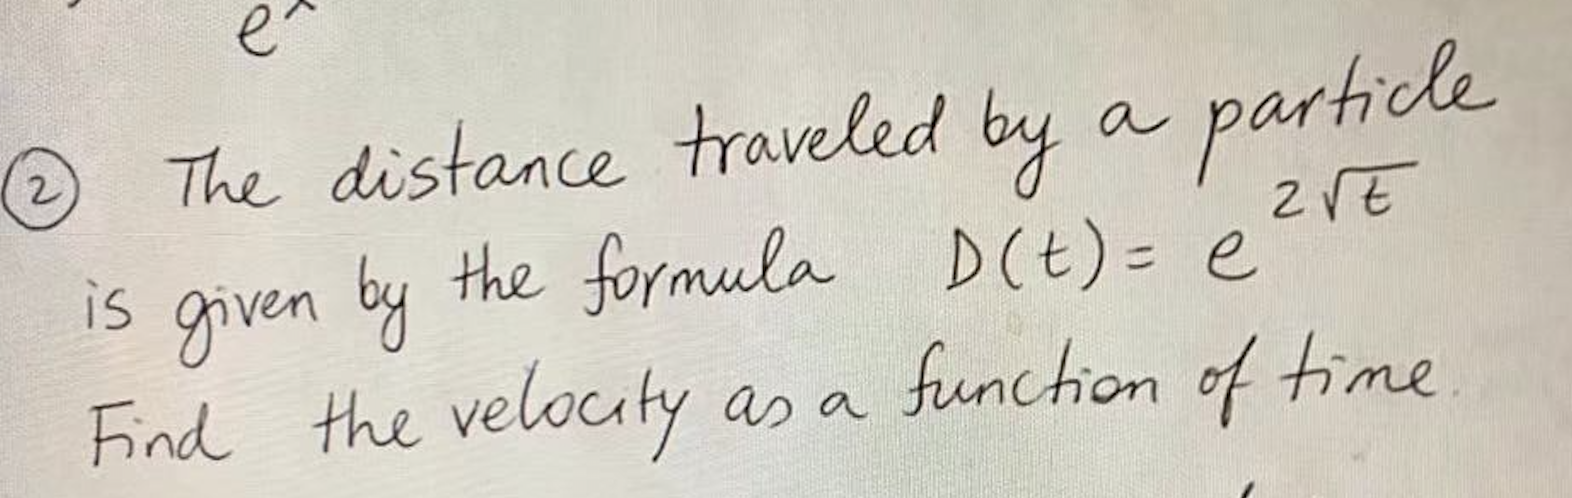 eˣ
② The distance traveled by a particle
is given by the formula D(t) = e^{2√t}
Find the velocity as a function of time.